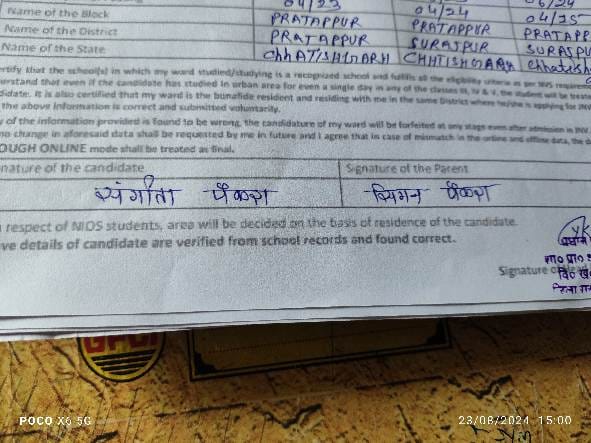 04/23 04/24 06/24
Name of the Block PRATAPPUR PRATAPPUR 04/25
Name of the District PRATAPPUR SURAJPUR PRATAPP
Name of the State ChhATISHGARH CHHTISHGARH SURAJPU
Chhatish
ertify that the school(s) in which my ward studied/studying is a recognized school and fulfills all the eligibility criteria as per NVS requirem
erstand that even if the candidate has studied in urban area for even a single day in any of the classes III, IV & V, the student will be treat
didate. It is also certified that my ward is the bonafide resident and residing with me in the same District where he/she is applying for JNV
the above information is correct and submitted voluntarily.
y of the information provided is found to be wrong, the candidature of my ward will be forfeited at any stage even after admission in JNV.
no change in aforesaid data shall be requested by me in future and I agree that in case of mismatch in the online and offline data, the d
OUGH ONLINE mode shall be treated as final.
nature of the candidate Signature of the Parent
संगीता पैकरा पैकरा
n respect of NIOS students, area will be decided on the basis of residence of the candidate.
ve details of candidate are verified from school records and found correct.
Signature of
POCO X6 5G
23/08/2024 15:00